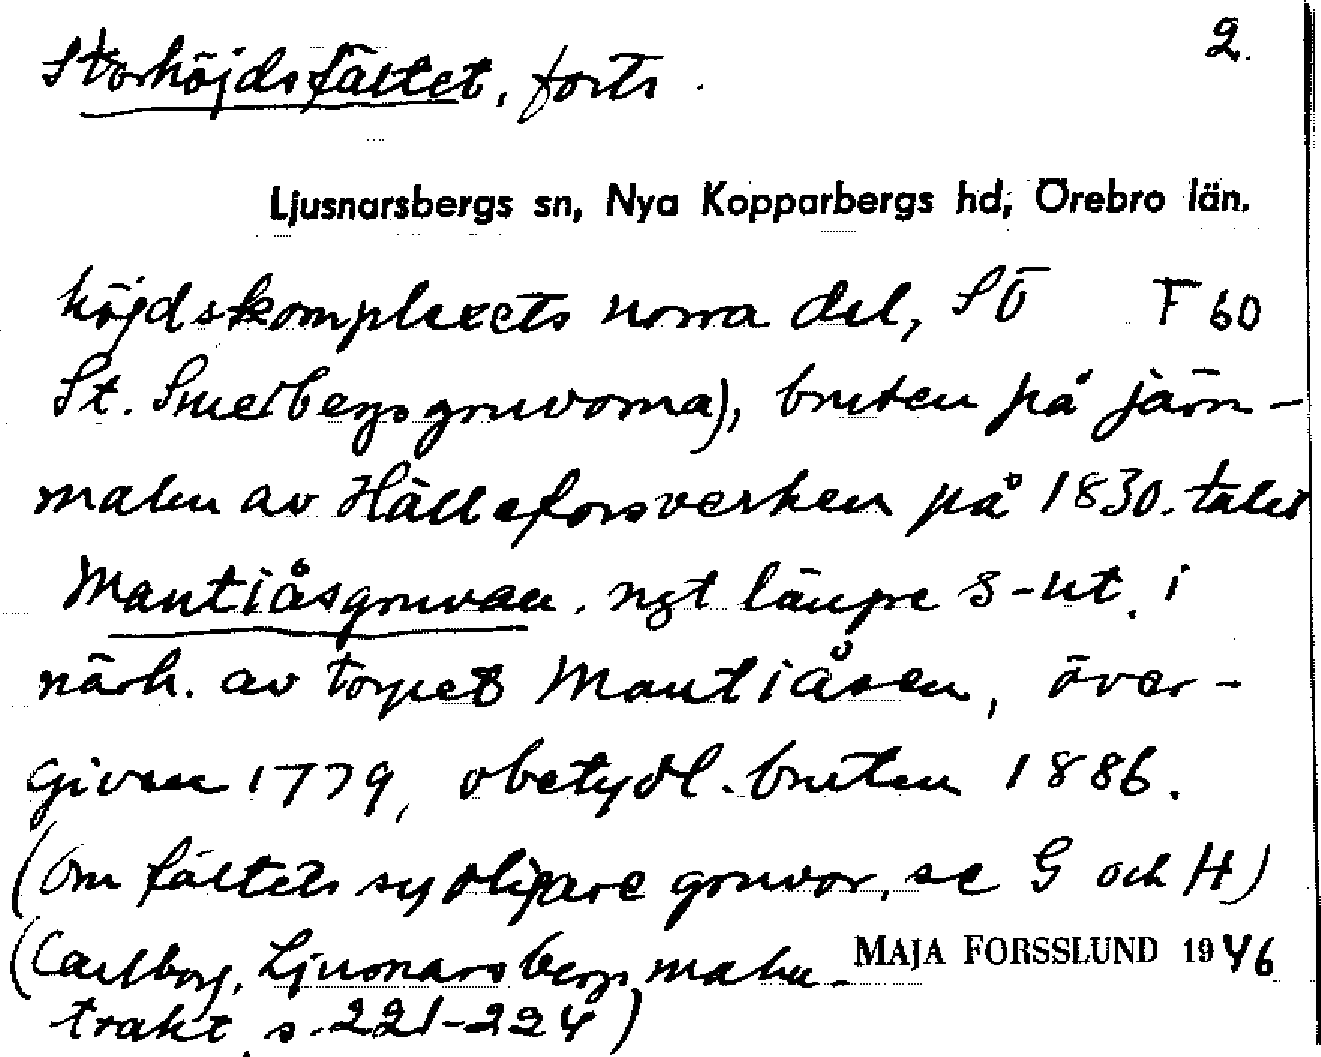 2.
Storhöjdsfältet, forts.
Ljusnarsbergs sn, Nya Kopparbergs hd, Örebro län.
höjdskomplexets norra del, SÖ F 60
St. Smedbergsgruvorna), bruten på järn-
malm av Hälleforsverken på 1830-talet
Mantiåsgruvan, ngt längre S-ut, i
närh. av torpet Mantiåsen, över-
given 1779, obetydl. bruten 1886.
(Om fältets sydligare gruvor, se G och H)
(Carlborg, Ljusnarsbergs malm-
MAJA FORSSLUND 1946
trakt, s. 221-224)